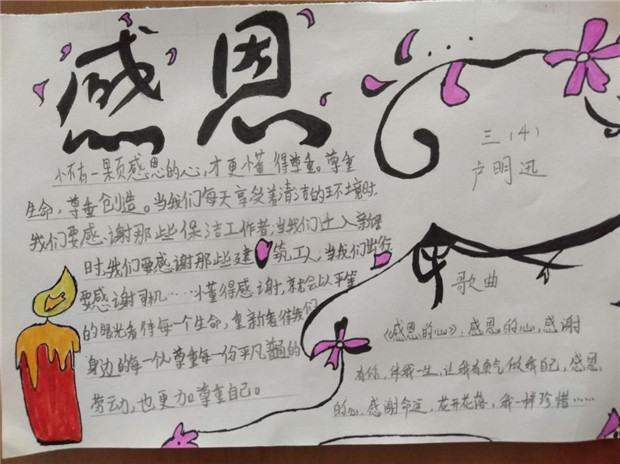 感恩
心有一颗感恩的心,才更懂得尊重。尊重
生命,尊重创造。当我们每天享受着清洁的环境时,
我们要感谢那些保洁工作者;当我们迁入新居
时,我们要感谢那些建筑工人;当我们出行
要感谢司机……懂得感谢,就会以平等
的眼光看待每一个生命,重新看待我们
身边的每一份尊重每一份平凡普通的
劳动,也更加尊重自己。
三(4)
卢明迅
歌曲
《感恩的心》,感恩的心,感谢
有你,伴我一生,让我有勇气做我自己,感恩
的心,感谢命运,花开花落,我一样珍惜……